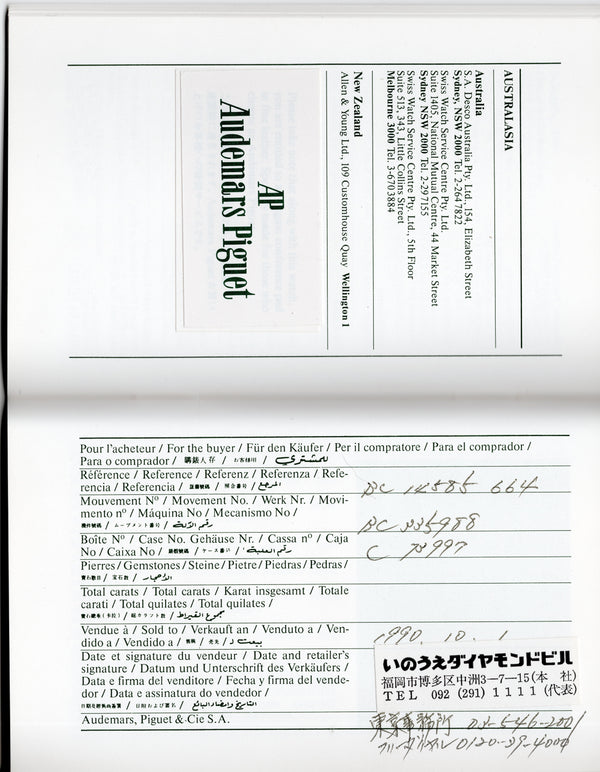 AUSTRALASIA
Australia
S.A. Desco Australia Pty. Ltd., 154, Elizabeth Street
Sydney, NSW 2000 Tel. 2-264 7822
Swiss Watch Service Centre Pty. Ltd.
Suite 1405, National Mutual Centre, 44 Market Street
Sydney NSW 2000 Tel. 2-29 7155
Swiss Watch Service Centre Pty. Ltd., 5th Floor
Suite 513, 343, Little Collins Street
Melbourne 3000 Tel. 3-670 3884
New Zealand
Allen & Young Ltd., 109 Customhouse Quay Wellington 1
AP
Audemars Piguet
Pour l'acheteur / For the buyer / Für den Käufer / Per il compratore / Para el comprador /
Para o comprador / 購錶人存 / お客様用 / للمشتري
Référence / Reference / Referenz / Referenza / Refe-
rencia / Referencia / 照合番号 / المرجع
BC 14585 664
Mouvement Nº / Movement No. / Werk Nr. / Movi-
mento nº / Máquina No / Mecanismo No /
ムーブメント番号 / رقم الآلة
BC 335988
Boîte Nº / Case No. Gehäuse Nr. / Cassa nº / Caja
No / Caixa No / ケース番号 / رقم العلبة
C 73997
Pierres / Gemstones / Steine / Pietre / Piedras / Pedras /
宝石数 / الأحجار
Total carats / Total carats / Karat insgesamt / Totale
carati / Total quilates / Total quilates /
総カラット数 / مجموع القيراط
Vendue à / Sold to / Verkauft an / Venduto a / Ven-
dido a / Vendido a /
1990. 10. 1
Date et signature du vendeur / Date and retailer's
signature / Datum und Unterschrift des Verkäufers /
Data e firma del venditore / Fecha y firma del vende-
dor / Data e assinatura do vendedor /
日附および署名 / التاريخ وامضاء البائع
Audemars, Piguet & Cie S.A.
いのうえダイヤモンドビル
福岡市博多区中洲3−7−15(本 社)
TEL 092 (291) 1111 (代表)
東京事務所 03-546-2001
フリーダイヤル 0120-29-4000